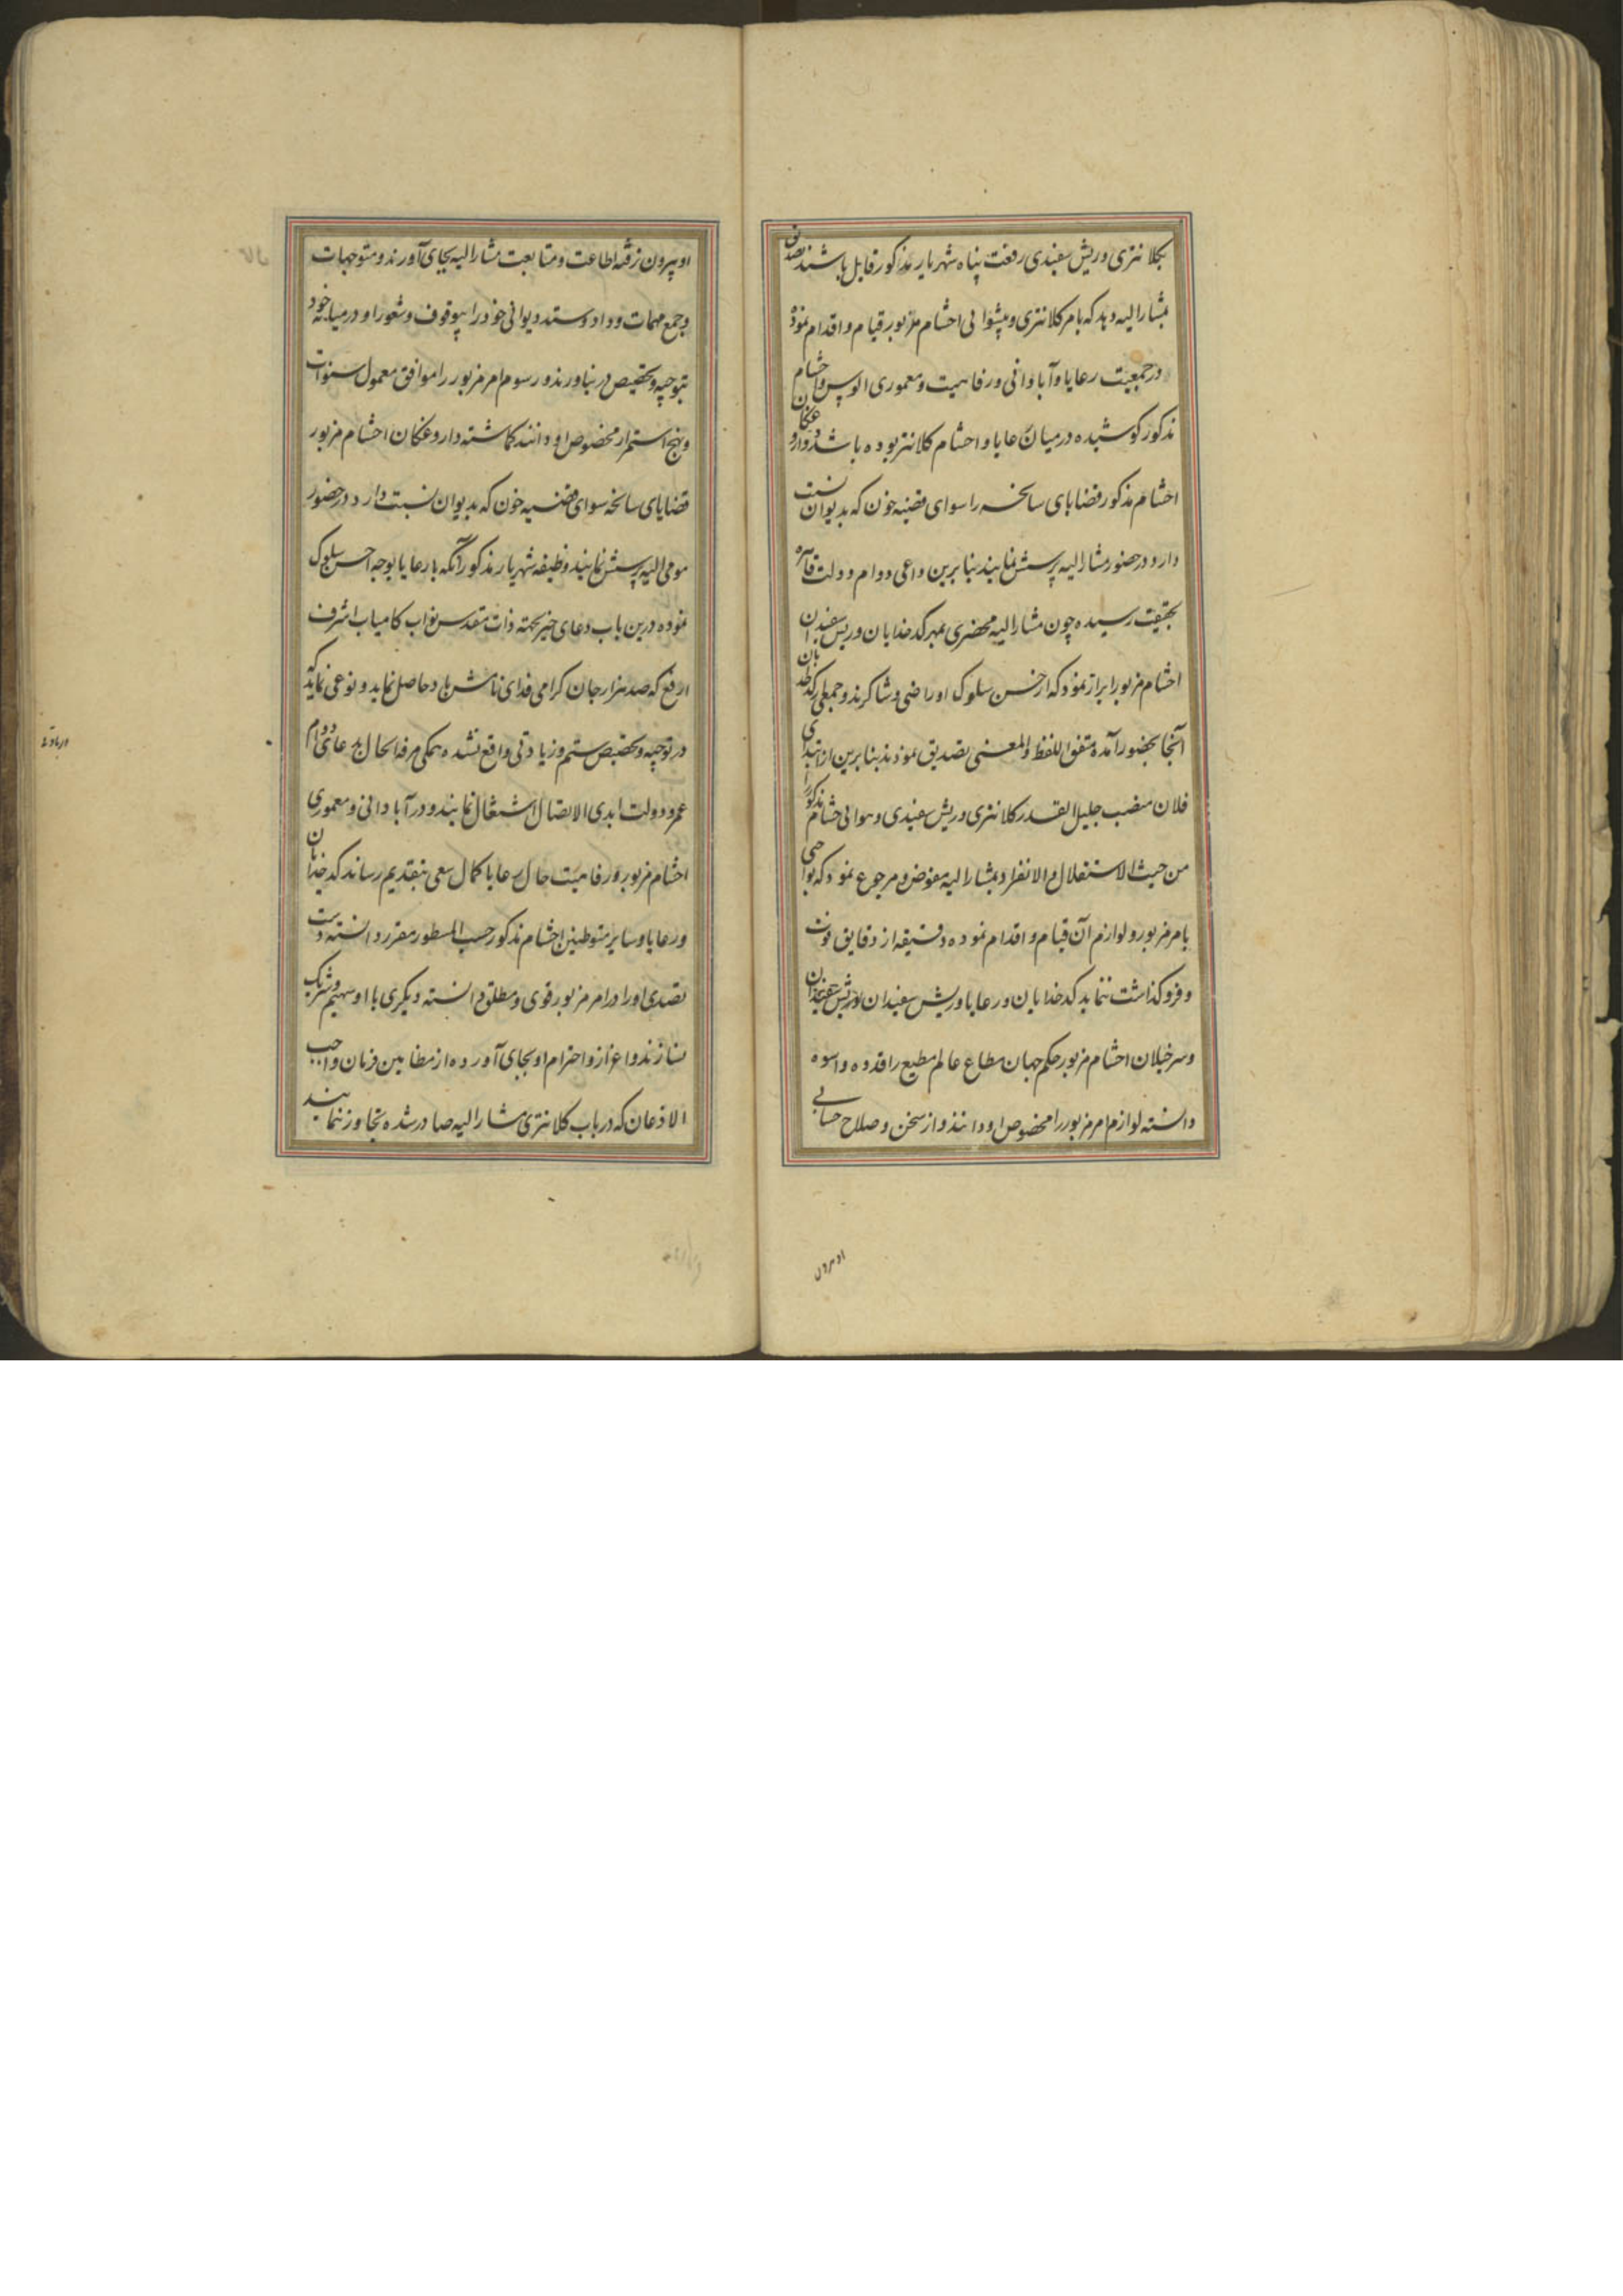 بکلانتری وریش سفیدی رفعت پناه شهریار مذکور قابل باشند تصدیق
بمشارالیه دهد که بامر کلانتری و پیشوائی احشام مزبور قیام و اقدام نموده
در جمعیت رعایا و آبادانی و رفاهیت و معموری الوس و احشام
مذکور کوشیده در میان رعایا و احشام کلانتر بوده باشد و داروغکان
احشام مذکور قضایای سانحه را سوای قضیه خون که بدیوان نسبت
دارد در حضور مشارالیه پرسش نمایند بنابرین داعی دوام دولت قاهره
بحقیقت رسیده چون مشارالیه محضری بمهر کدخدایان وریش سفیدان
احشام مزبور ابراز نمود که از حسن سلوک او راضی و شاکرند و جمعی کدخدایان
آنجا بحضور آمده متفق اللفظ والمعنی تصدیق نمودند بنابرین از ابتدای
فلان منصب جلیل القدر کلانتری وریش سفیدی و احشام مذکور را
من حیث الاستقلال والانفراد بمشارالیه مفوض و مرجوع نمود که بواجبی
بامر مزبور و لوازم آن قیام و اقدام نموده دقیقه از دقایق فوت
و فروکذاشت ننماید کدخدایان و رعایا وریش سفیدان
و سرخیلان احشام مزبور حکم جهان مطاع عالم مطیع را قدوه و اسوه
دانسته لوازم امر مزبور را مخصوص او دانند و از سخن و صلاح حسابی
او بیرون
او بیرون نرفته اطاعت و متابعت مشارالیه بجای آورند و متوجهات
و جمع مهمات و داد و ستد دیوانی خود را بوقوف و شعور او در میانه خود
بتوجیه و تخصیص در بیاورند و رسوم امر مزبور را موافق معمول سنوات
و نهج استمرار مخصوص او دانند کماشته داروغکان احشام مزبور
قضایای سانحه سوای قضیه خون که بدیوان نسبت دارد در حضور
مومی الیه پرسش نمایند وظیفه شهریار مذکور آنکه با رعایا بوجه احسن سلوک
نموده درین باب دعای خیر بجهته ذات مقدس نواب کامیاب اشرف
ارفع که صد هزار جان کرامی فدای نامش باد حاصل نماید و نوعی نماید که
در توجیه و تخصیص ستم و زیادتی واقع نشده همکی مرفه الحال بدعای دوام
عمر و دولت ابدی الاتصال اشتغال نمایند و در آبادانی و معموری
احشام مزبور و رفاهیت حال رعایا کمال سعی بتقدیم رساند کدخدایان
و رعایا و سایر متوطنین احشام مذکور حسب المسطور مقرر دانسته دست
تصدی او را در امر مزبور قوی و مطلق دانسته دیکری با او سهیم و شریک
نسازند و اعزاز و احترام او بجای آورده از مضامین فرمان واجب
الاذعان که در باب کلانتری مشارالیه صادر شده تجاوز ننمایند